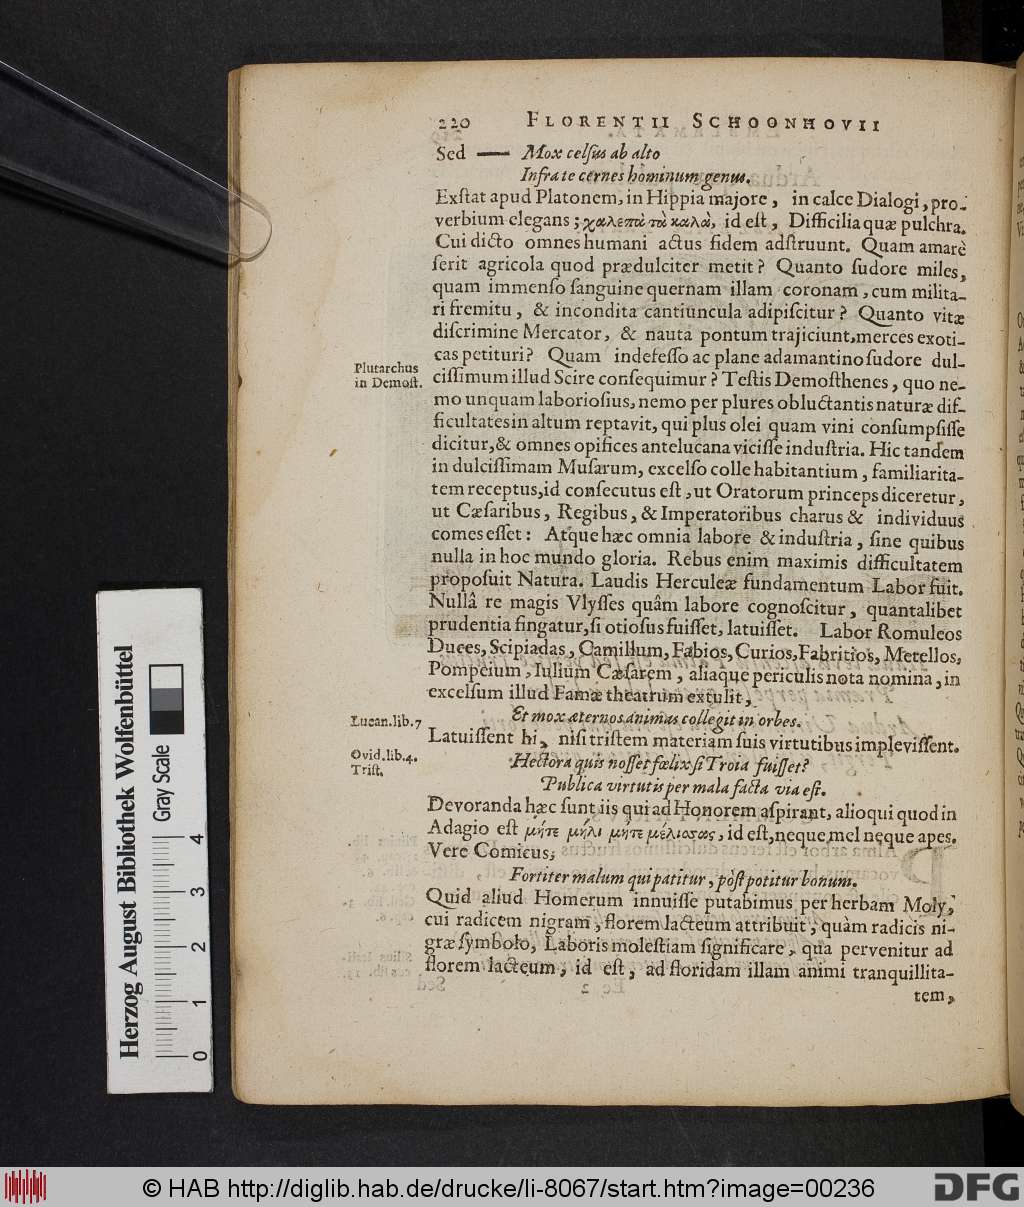 220 FLORENTII SCHOONHOVII
Sed —— Mox celſus ab alto
Infra te cernes hominum genus.
Exſtat apud Platonem, in Hippia majore, in calce Dialogi, pro-
verbium elegans; χαλεπὰ τὰ καλὰ, id eſt, Difficilia quæ pulchra.
Cui dicto omnes humani actus fidem adſtruunt. Quam amarè
ſerit agricola quod prædulciter metit? Quanto ſudore miles,
quam immenſo ſanguine quernam illam coronam, cum milita-
ri fremitu, & incondita cantiuncula adipiſcitur? Quanto vitæ
diſcrimine Mercator, & nauta pontum trajiciunt, merces exoti-
cas petituri? Quam indefeſſo ac plane adamantino ſudore dul-
Plutarchus
in Demoſt.
ciſſimum illud Scire conſequimur? Teſtis Demoſthenes, quo ne-
mo unquam laborioſius, nemo per plures obluctantis naturæ dif-
ficultates in altum reptavit, qui plus olei quam vini conſumpſiſſe
dicitur, & omnes opifices antelucana viciſſe induſtria. Hic tandem
in dulciſſimam Muſarum, excelſo colle habitantium, familiarita-
tem receptus, id conſecutus eſt, ut Oratorum princeps diceretur,
ut Cæſaribus, Regibus, & Imperatoribus charus & individuus
comes eſſet: Atque hæc omnia labore & induſtria, ſine quibus
nulla in hoc mundo gloria. Rebus enim maximis difficultatem
propoſuit Natura. Laudis Herculeæ fundamentum Labor fuit.
Nullâ re magis Vlyſſes quâm labore cognoſcitur, quantalibet
prudentia fingatur, ſi otioſus fuiſſet, latuiſſet. Labor Romuleos
Duces, Scipiadas, Camillum, Fabios, Curios, Fabritios, Metellos,
Pompeium, Iulium Cæſarem, aliaque periculis nota nomina, in
excelſum illud Famæ theatrum extulit,
Lucan. lib. 7
Et mox æternos animas collegit in orbes.
Latuiſſent hi, niſi triſtem materiam ſuis virtutibus impleviſſent.
Ovid. lib. 4.
Triſt.
Hectora quis noſſet fœlix ſi Troia fuiſſet?
Publica virtutis per mala facta via eſt.
Devoranda hæc ſunt iis qui ad Honorem aſpirant, alioqui quod in
Adagio eſt μήτε μῆλι μήτε μέλιοσας, id eſt, neque mel neque apes.
Vere Comicus;
Fortiter malum qui patitur, pòſt potitur bonum.
Quid aliud Homerum innuiſſe putabimus per herbam Moly,
cui radicem nigram, florem lacteum attribuit, quàm radicis ni-
græ ſymbolo, Laboris moleſtiam ſignificare, qua pervenitur ad
florem lacteum, id eſt, ad floridam illam animi tranquillita-
tem,
Herzog August Bibliothek Wolfenbüttel
Gray Scale
0 1 2 3 4
© HAB http://diglib.hab.de/drucke/li-8067/start.htm?image=00236
DFG